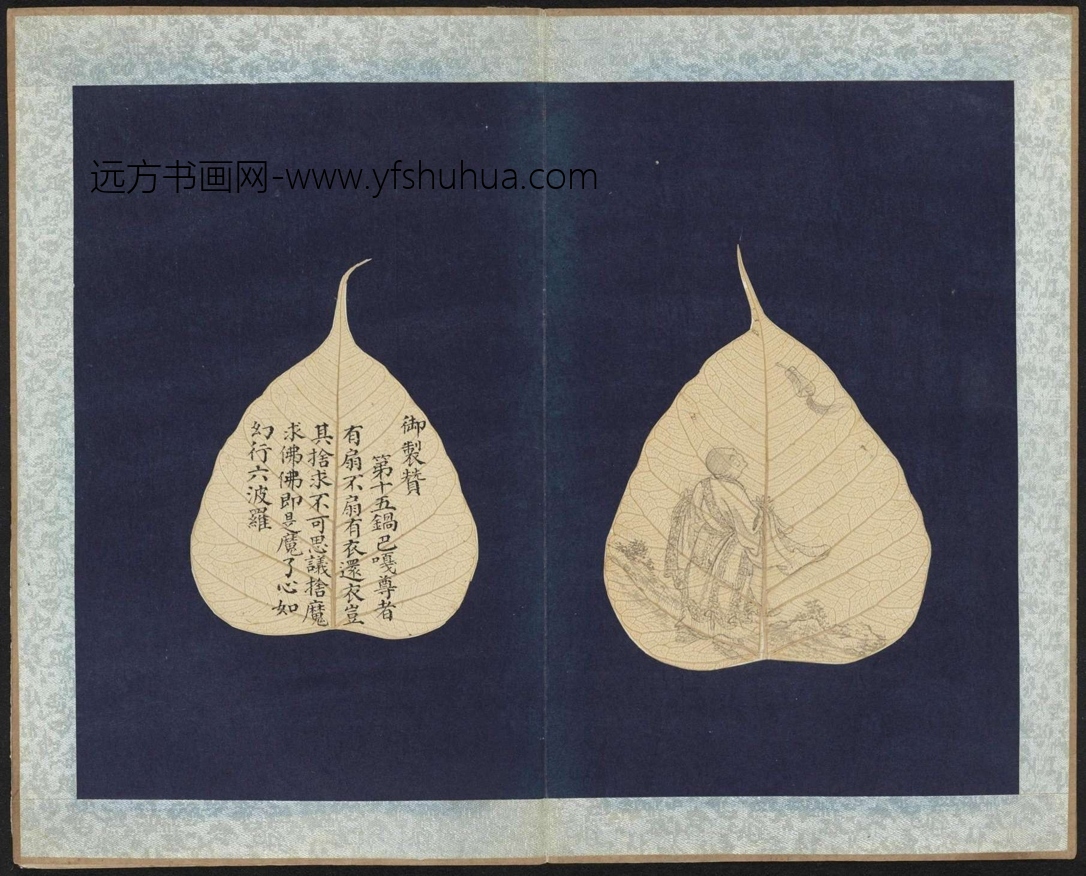 远方书画网-www.yfshuhua.com
御製贊
第十五鍋巴嘎尊者
有扇不扇有衣還衣豈
其捨求不可思議捨魔
求佛佛即是魔了心如
幻行六波羅